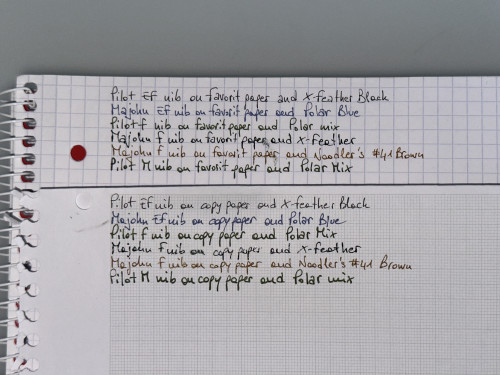 Pilot EF nib on favorit paper and X-feather Black
Majohn EF nib on favorit paper and Polar Blue
Pilot f nib on favorit paper and Polar mix
Majohn f nib on favorit paper and X-feather
Majohn f nib on favorit paper and Noodler's #41 Brown
Pilot M nib on favorit paper and Polar Mix
Pilot EF nib on copy paper and X-feather Black
Majohn EF nib on copy paper and Polar Blue
Pilot f nib on copy paper and Polar Mix
Majohn F nib on copy paper and X-feather
Majohn f nib on copy paper and Noodler's #41 Brown
Pilot M nib on copy paper and Polar mix